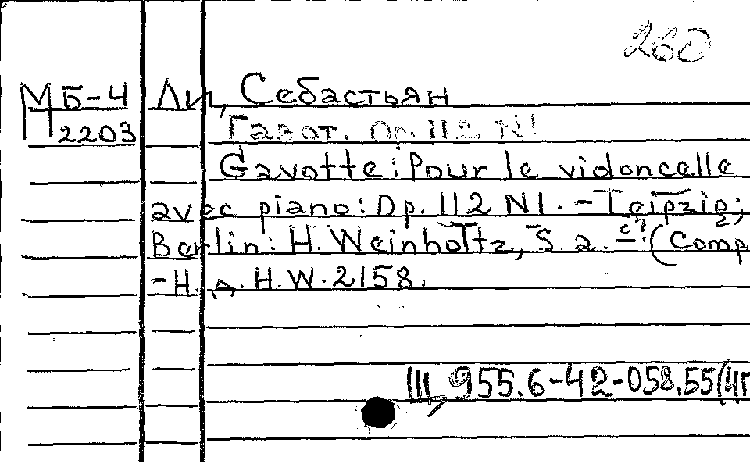 260
МБ-4 Ли, Себастьян
2203 Гавот. Op. 112 N1
Gavotte: Pour le violoncelle
avec piano: Op. 112 N1. - Leipzig;
Berlin: H. Weinholtz, S. a. - (Comp
- Н. д. H.W. 2158.
III, 955.6-42-058.55